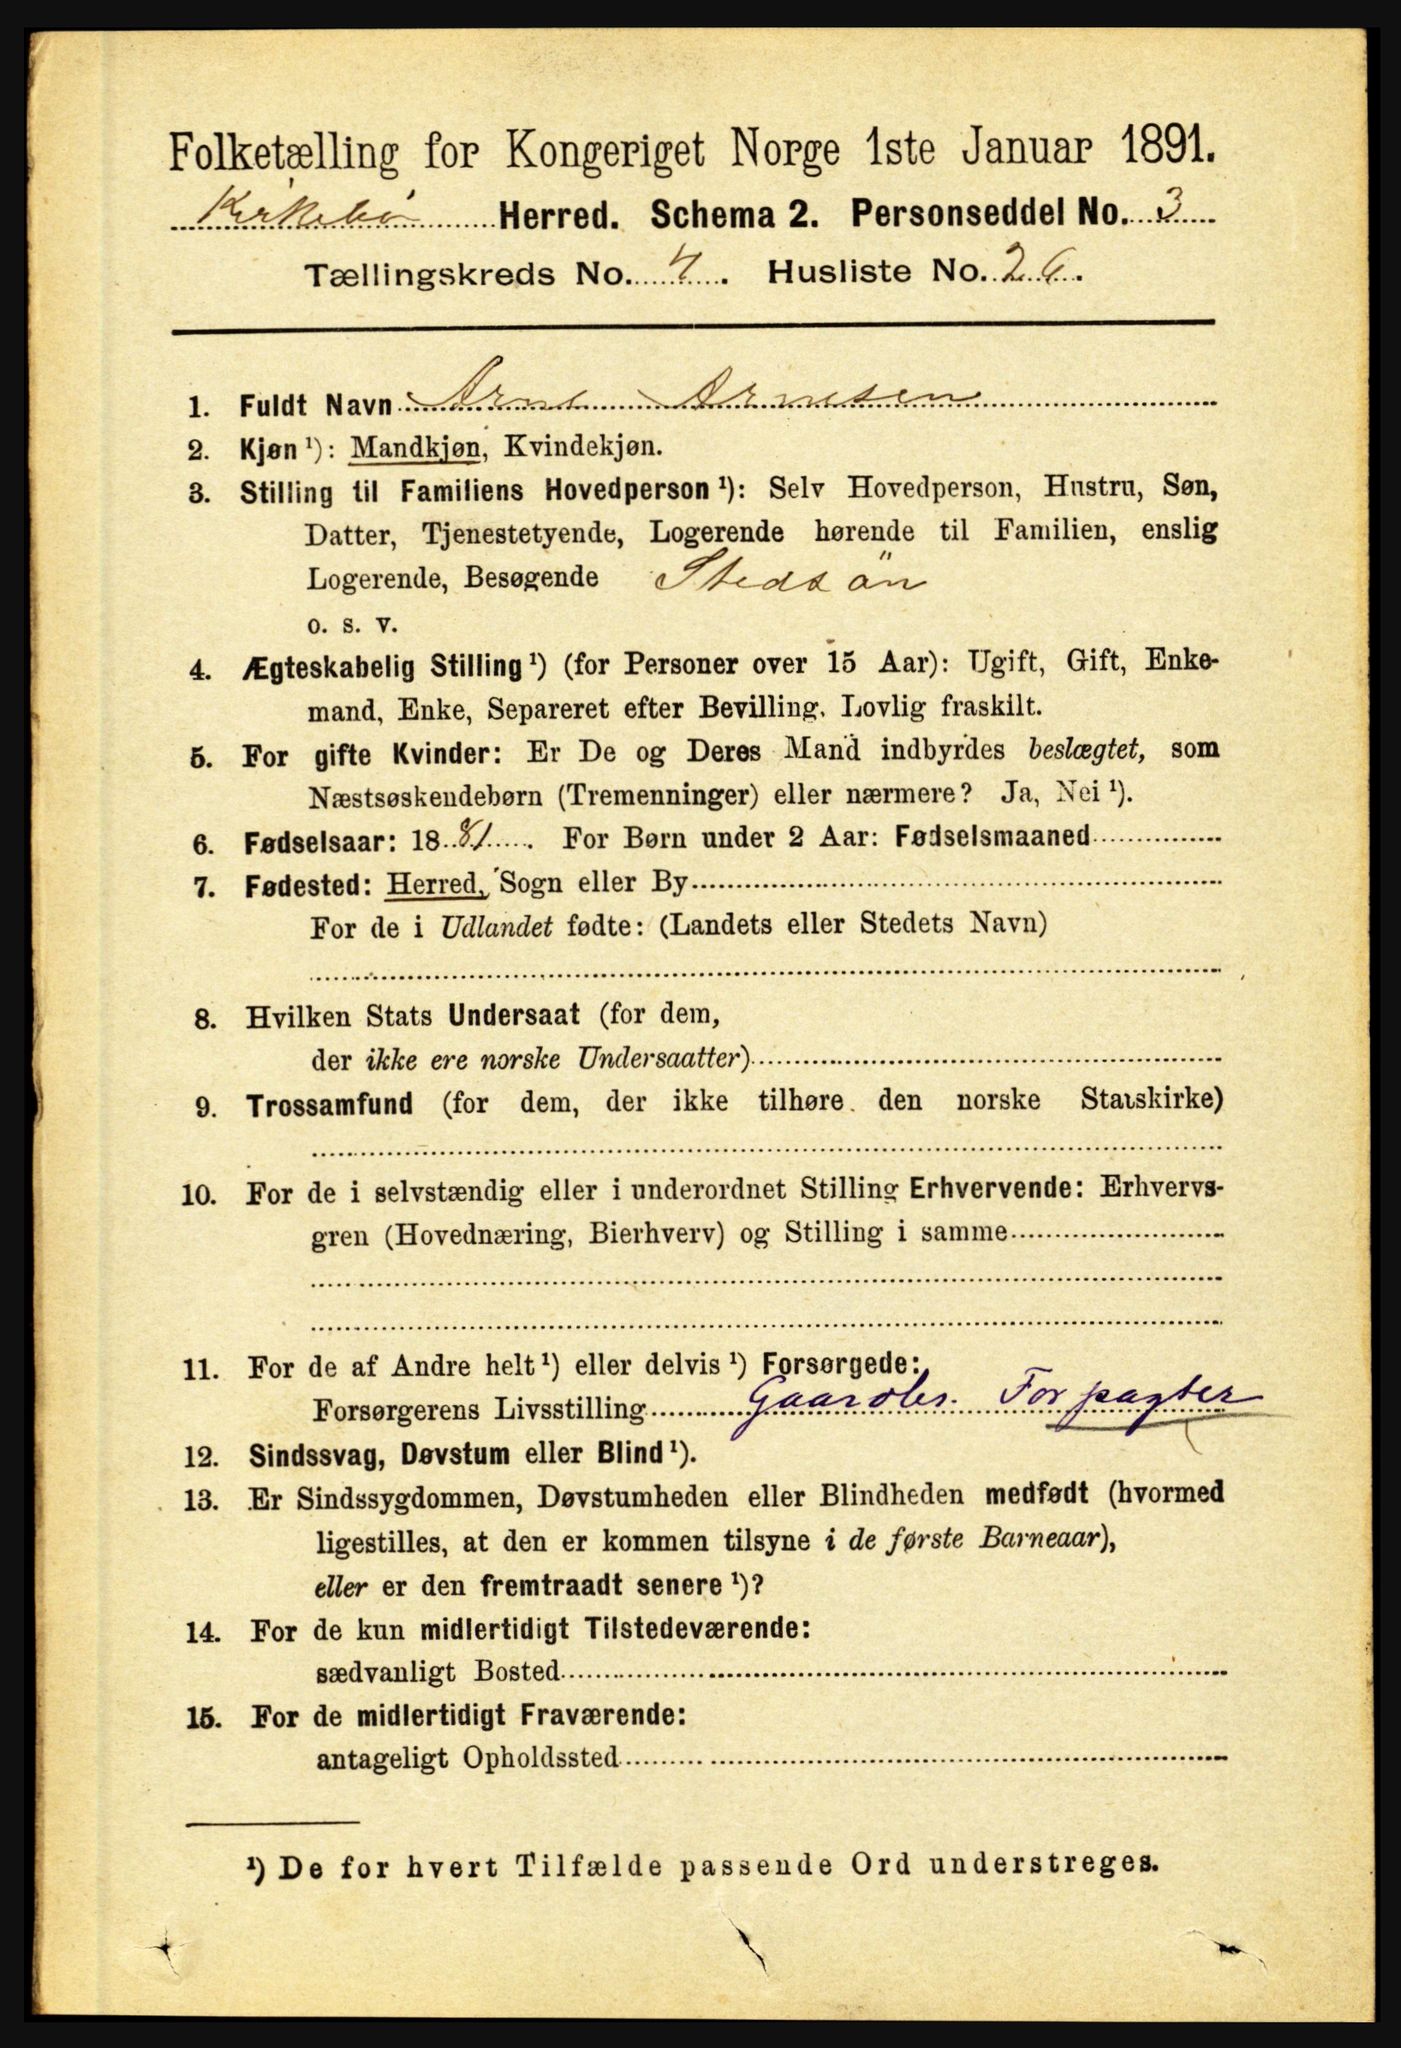 Folketælling for Kongeriget Norge 1ste Januar 1891.
Kirkebø Herred. Schema 2. Personseddel No. 3
Tællingskreds No. 4. Husliste No. 26.
1. Fuldt Navn Arne Arnesen
2. Kjøn ¹): Mandkjøn, Kvindekjøn.
3. Stilling til Familiens Hovedperson ¹): Selv Hovedperson, Hustru, Søn,
Datter, Tjenestetyende, Logerende hørende til Familien, enslig
Logerende, Besøgende Stedsön
o. s. v.
4. Ægteskabelig Stilling ¹) (for Personer over 15 Aar): Ugift, Gift, Enke-
mand, Enke, Separeret efter Bevilling. Lovlig fraskilt.
5. For gifte Kvinder: Er De og Deres Mand indbyrdes beslægtet, som
Næstsøskendebørn (Tremenninger) eller nærmere? Ja, Nei ¹).
6. Fødselsaar: 1881. For Børn under 2 Aar: Fødselsmaaned
7. Fødested: Herred, Sogn eller By
For de i Udlandet fødte: (Landets eller Stedets Navn)
8. Hvilken Stats Undersaat (for dem,
der ikke ere norske Undersaatter)
9. Trossamfund (for dem, der ikke tilhøre den norske Statskirke)
10. For de i selvstændig eller i underordnet Stilling Erhvervende: Erhvervs-
gren (Hovednæring, Bierhverv) og Stilling i samme
11. For de af Andre helt ¹) eller delvis ¹) Forsørgede:
Forsørgerens Livsstilling Gaardbr. Forpagter
12. Sindssvag, Døvstum eller Blind ¹).
13. Er Sindssygdommen, Døvstumheden eller Blindheden medfødt (hvormed
ligestilles, at den er kommen tilsyne i de første Barneaar),
eller er den fremtraadt senere ¹)?
14. For de kun midlertidigt Tilstedeværende:
sædvanligt Bosted
15. For de midlertidigt Fraværende:
antageligt Opholdssted
¹) De for hvert Tilfælde passende Ord understreges.